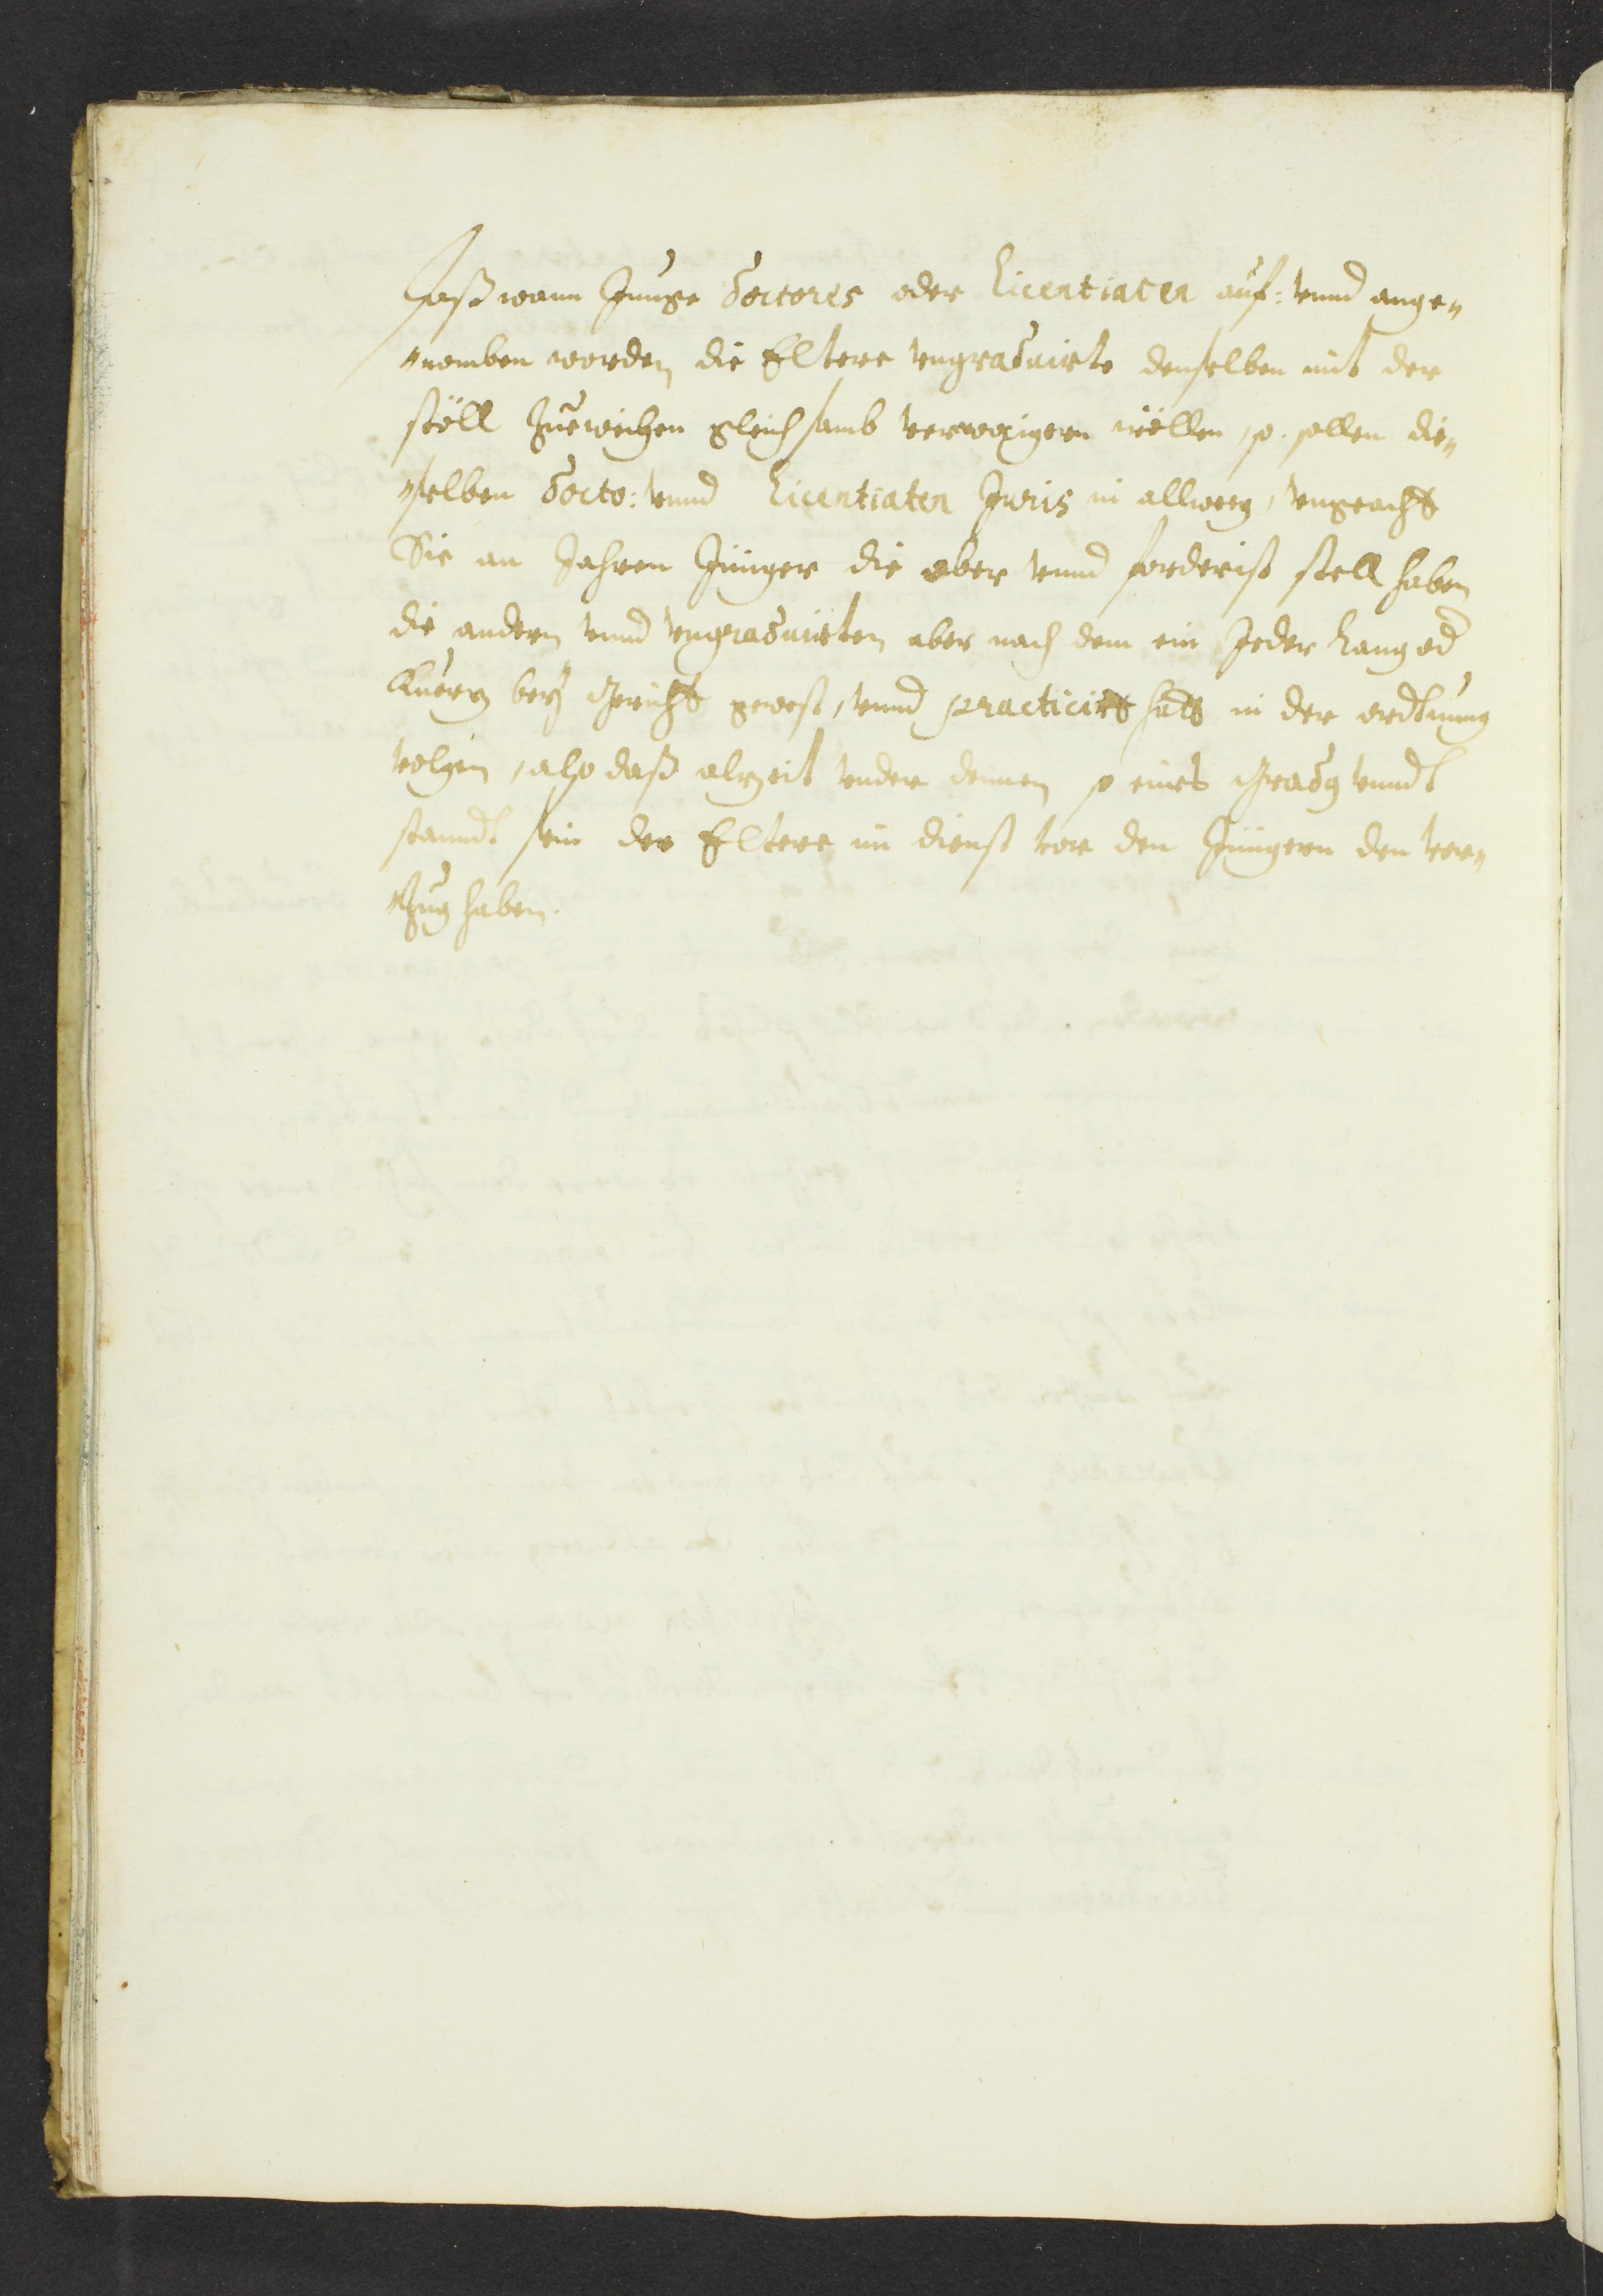 daß wann Junge Doctores oder Licentiaten auf: vnnd ange„
„nomben worden, die Eltere vngraduirte denselben mit der
stöll Zueweichen gleichsamb verwaigern wöllen, so sollen die„
„selben Docto: vnnd Licentiaten Juris in allweeg, vngeacht
Sie an Jahren Jünger die ober vnnd forderist stell haben,
die andern vnnd vngraduirten aber nach dem ein Jeder lang od
Kuerz beÿ Gericht gewest, vnnd practicirt hatt in der ordtnung
volgen, also daß alzeit vnder dennen so eines Grads vnndt
standt sein der Eltere im dienst vor den Jüngern den vor„
„Zug haben.